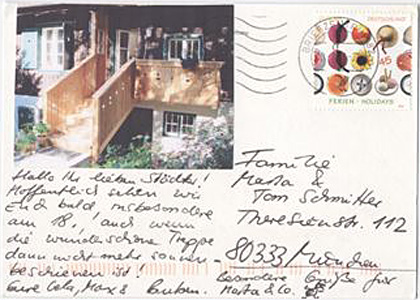 DEUTSCHLAND
45
FERIEN - HOLIDAYS
BRIEFZEN
Hallo Ihr lieben Städter!
Hoffentlich sehen wir
Euch bald, insbesondere
am 18., auch wenn
die wunderschöne Treppe
dann nicht mehr sonnen-
beschienen ist!
Eure Max &
Familie
Marta &
Tom Schmitter
Theresienstr. 112
80333 München
Besondere Grüße für
Marta & Co.